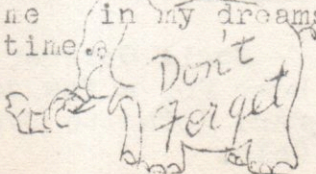 me in my dreams
time.
Don't
Forget